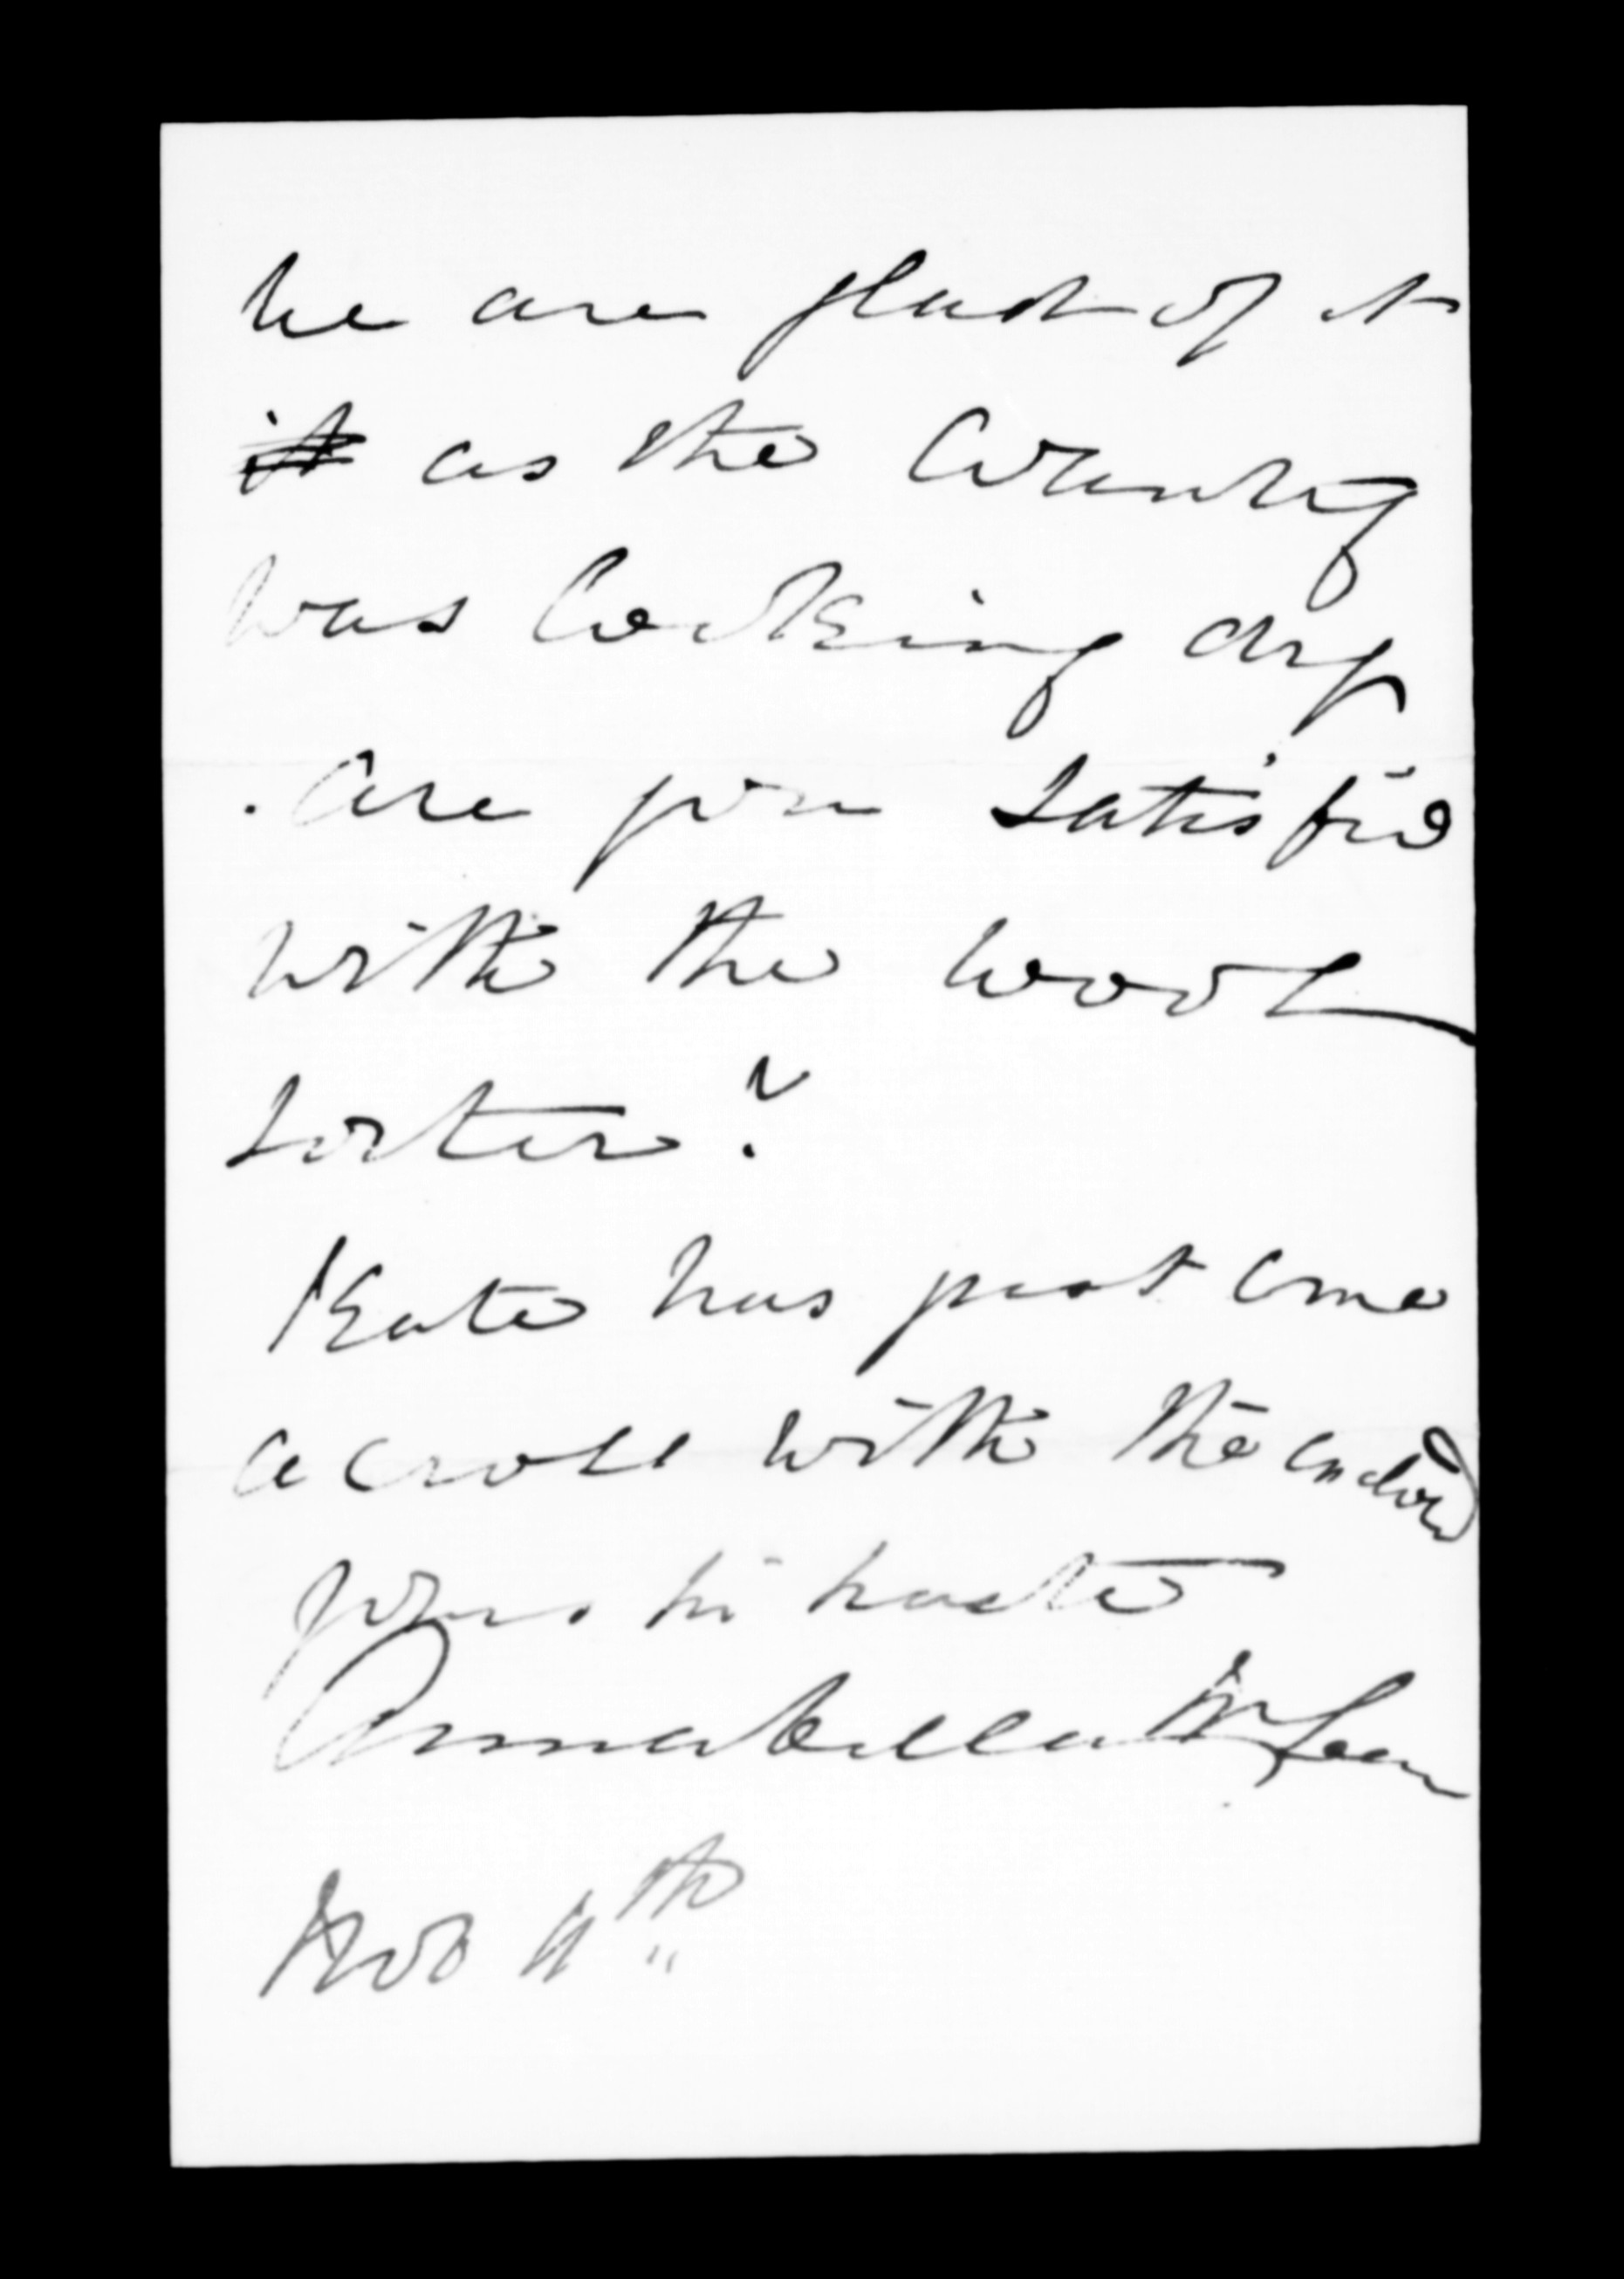 We are glad of it
it as the Country
was looking dry
. Are you satisfied
with the wool
sorter?
Kate has just come
across with the enclosed
yours in haste
Annabella McLean
Nov 4th